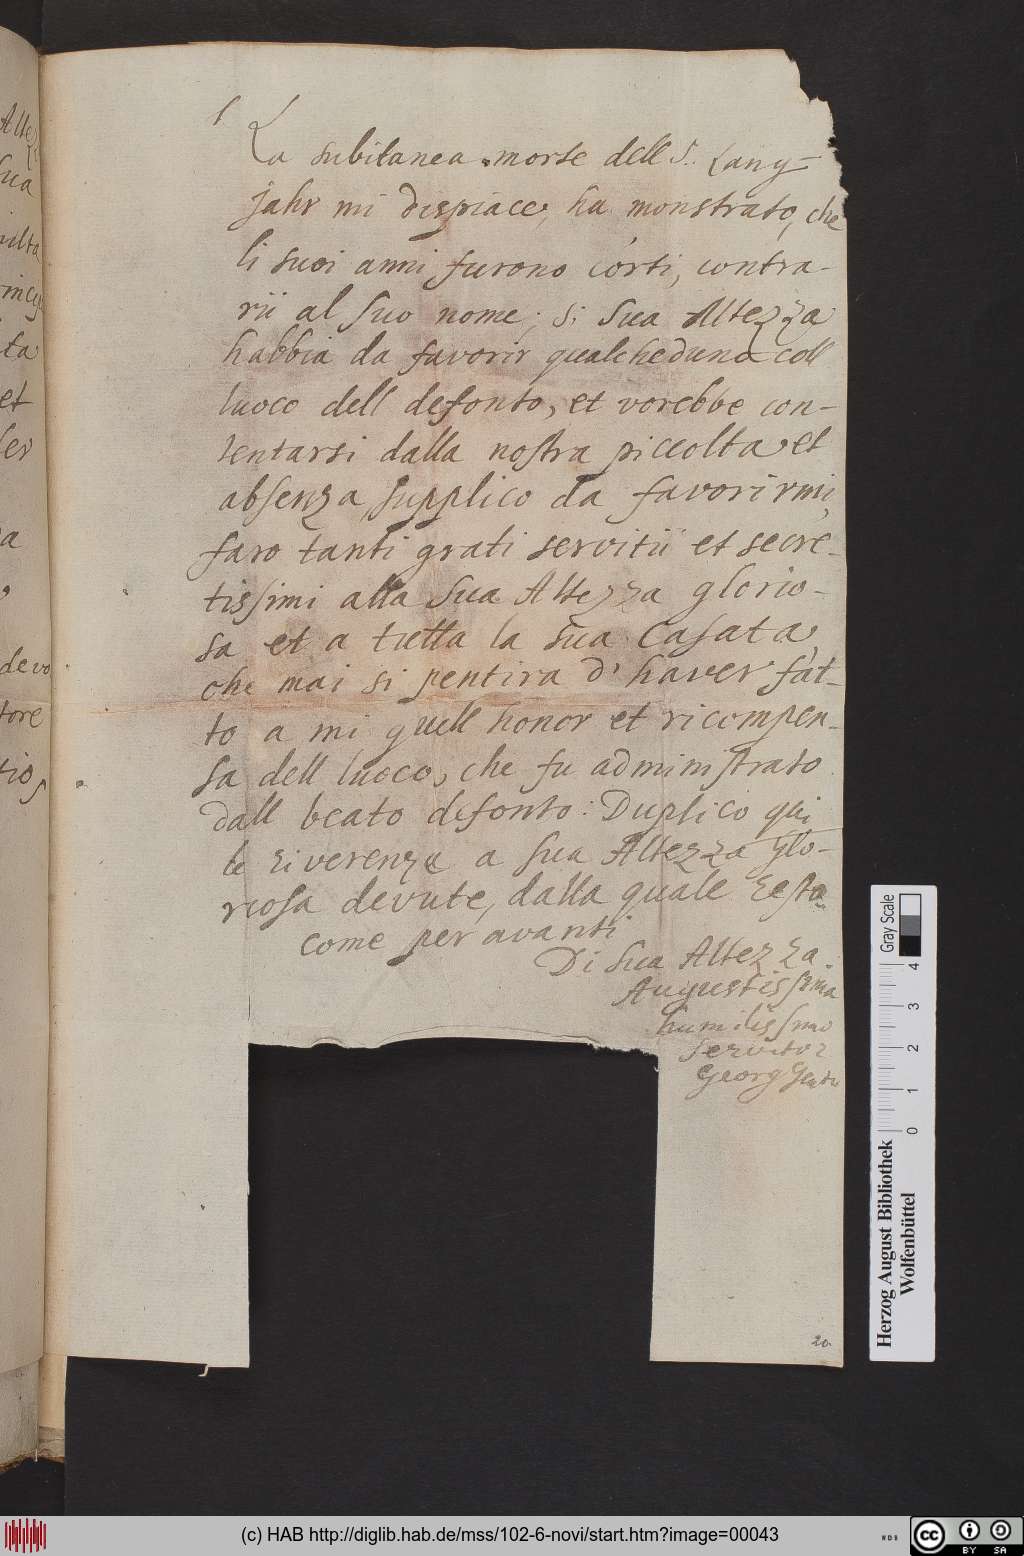 La subitanea morte dell S. Lang-
jahr mi dispiace, ha monstrato, che
li suoi anni furono corti, contra-
rii al suo nome; si Sua Altezza
habbia da favorir qualcheduno coll
luoco dell defonto, et vorebbe con-
tentarsi dalla nostra piccolta et
absenza, supplico da favorirmi,
faro tanti grati servitii et secre-
tissimi alla Sua Altezza glorio-
sa et a tutta la sua Casata,
che mai si pentira d' haver fat-
to a mi quell honor et ricompen-
sa dell luoco, che fu administrato
dall beato defonto: Duplico qui
le riverenze a Sua Altezza glo-
riosa devute, dalla quale resto
come per avanti
Di Sua Altezza
Augustissima
humilissimo
servitor
Georg
20.
Alte
sua
ta
et
devo
tore
Gray Scale
0 1 2 3 4
Herzog August Bibliothek
Wolfenbüttel
(c) HAB http://diglib.hab.de/mss/102-6-novi/start.htm?image=00043
WDB
cc BY SA